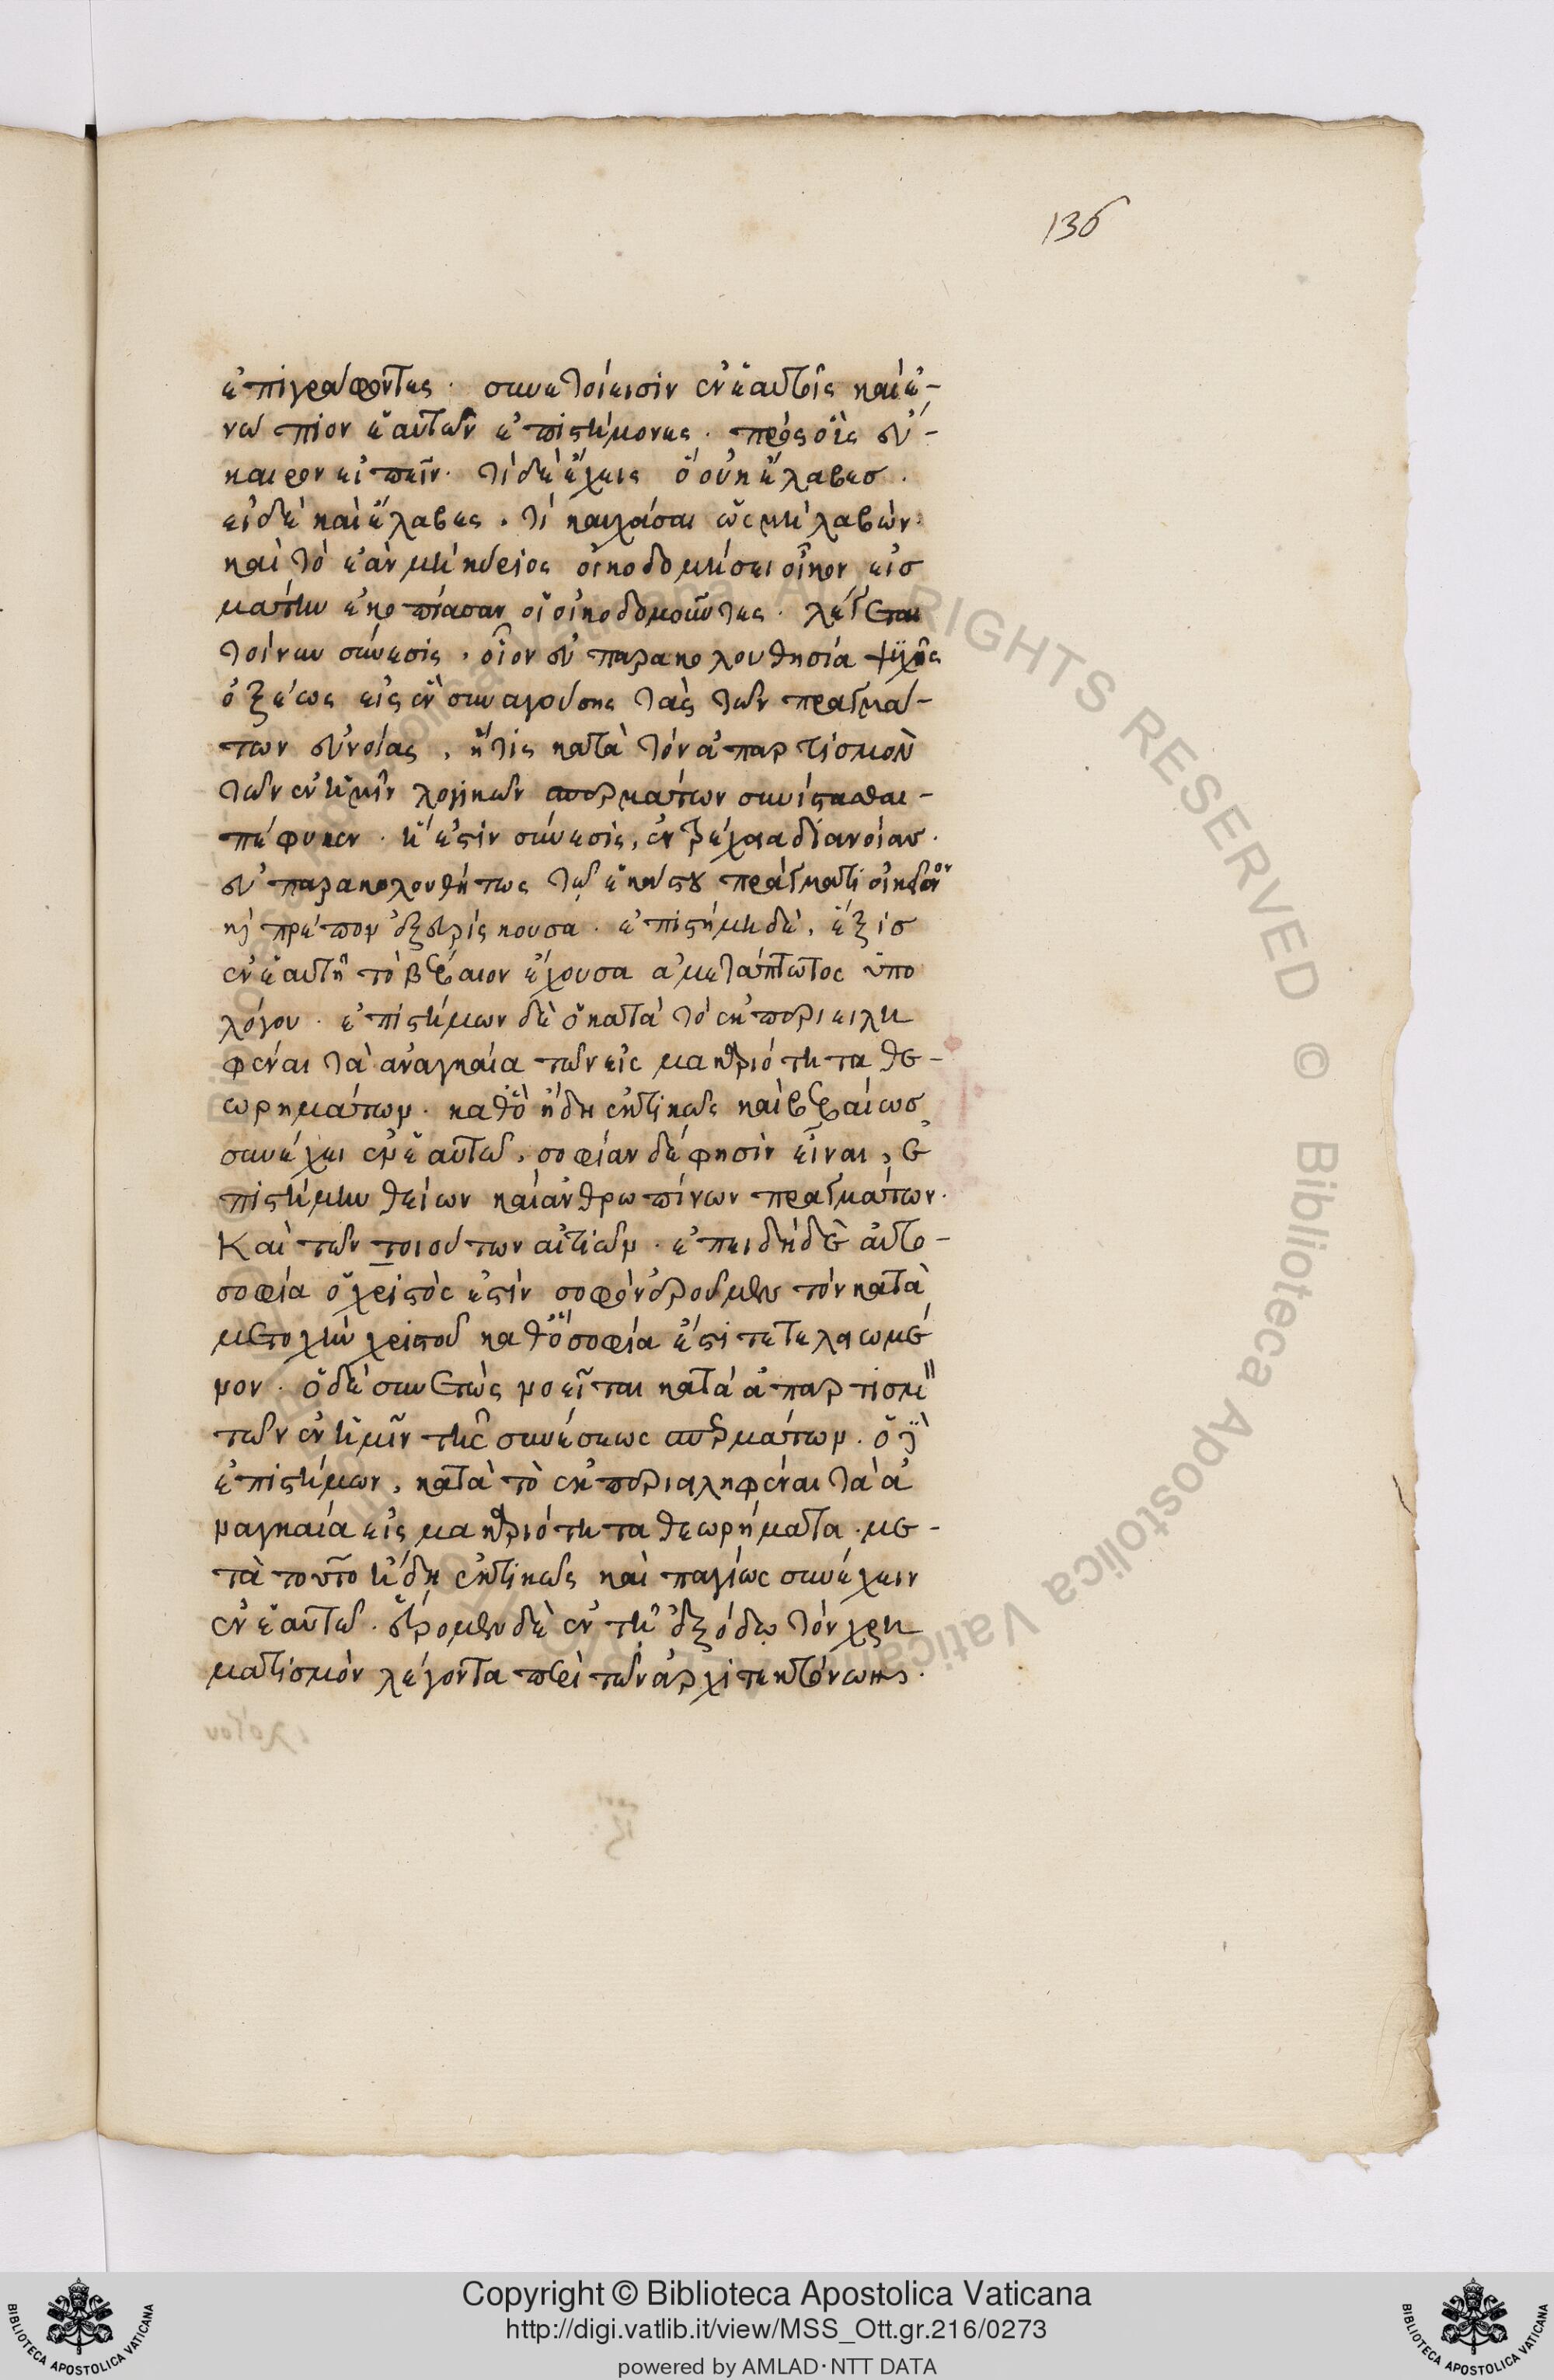 136
ἐπιγράφοντες. συνετοί εἰσιν ἐν ἑαυτοῖς καὶ ἐ-
νώπιον ἑαυτῶν ἐπιστήμονες. πρὸς οἷς εὔ-
καιρον εἰπεῖν. τί δὲ ἔχεις ὃ οὐκ ἔλαβες.
εἰ δὲ καὶ ἔλαβες, τί καυχᾶσαι ὡς μὴ λαβών.
καὶ τὸ ἐὰν μὴ κύριος οἰκοδομήσει οἶκον εἰς
μάτην ἐκοπίασαν οἱ οἰκοδομοῦντες. λέγεται
τοίνυν σύνεσις, οἷον εὐπαρακολουθησία ψυχῆς
ὀξέως εἰς ἓν συναγούσης τὰς τῶν πραγμά-
των εὐνοίας, ἥτις κατὰ τὸν ἀπαρτισμὸν
τῶν ἐν ἡμῖν λογικῶν σπερμάτων συνίστασθαι-
πέφυκεν. ἢ ἐστὶν σύνεσις, ἐντρέχεια διανοίας.
εὐπαρακολουθήτως τῷ ἑκάστου πράγματι οἰκεῖον
καὶ πρέπον ἐξευρίσκουσα. ἐπιστήμη δὲ, ἕξις
ἐν ἑαυτῇ τὸ βέβαιον ἔχουσα ἀμετάπτωτος ὑπο
λόγου. ἐπιστήμων δὲ ὁ κατὰ τὸ ἐκπεριειλη
φέναι τὰ ἀναγκαῖα τῶν εἰς μακαριότητα θε-
ωρημάτων. καθὸ ἤδη ἑκτικῶς καὶ βεβαίως
συνέχει ἐν ἑαυτῷ, σοφίαν δέ φησιν εἶναι, ἐ
πιστήμην θείων καὶ ἀνθρωπίνων πραγμάτων.
Καὶ τῶν τοιούτων αἰτιῶν. ἐπειδὴ δὲ αὐτο-
σοφία ὁ χριστὸς ἐστὶν σοφὸν ἐροῦμεν τὸν κατὰ
μετοχὴν χριστοῦ καθὸ σοφία ἐστὶ τετελειωμέ
νον. ὁ δὲ συνετὸς νοεῖται κατὰ ἀπαρτισμὸν
τῶν ἐν ἡμῖν τῆς συνέσεως σπερμάτων. ὁ δὲ
ἐπιστήμων, κατὰ τὸ ἐκπεριειληφέναι τὰ ἀ
ναγκαῖα εἰς μακαριότητα θεωρήματα. με-
τὰ τοῦτο ἤδη ἑκτικῶς καὶ παγίως συνέχειν
ἐν ἑαυτῷ. εὕρομεν δὲ ἐν τῇ ἐξόδῳ τὸν χρη
ματισμὸν λέγοντα περὶ τῶν ἀρχιτεκτόνων.
Copyright © Biblioteca Apostolica Vaticana
http://digi.vatlib.it/view/MSS_Ott.gr.216/0273
powered by AMLAD·NTT DATA